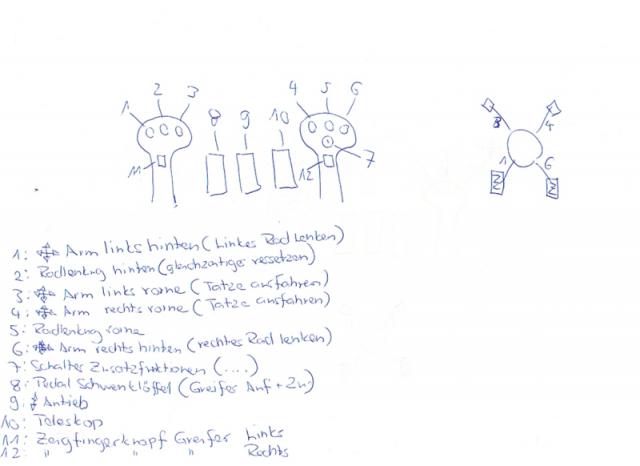 1 2 3 8 9 10 4 5 6
11 12 7
8 4
1 6
1: Arm links hinten (Linkes Rad Lenken)
2: Radlenkung hinten (gleichzeitiges
3: Arm links vorne (Tatze ausfahren)
4: Arm rechts vorne (Tatze ausfahren)
5: Radlenkung vorne
6: Arm rechts hinten (rechtes Rad lenken)
7: Schalter Zusatzfunktionen (....)
8: Pedal Schwenklöffel (Greifer Auf + Zu)
9: Antieb
10: Teleskop
11: Zeigfingerknopf Greifer Links
12: " " " Rechts